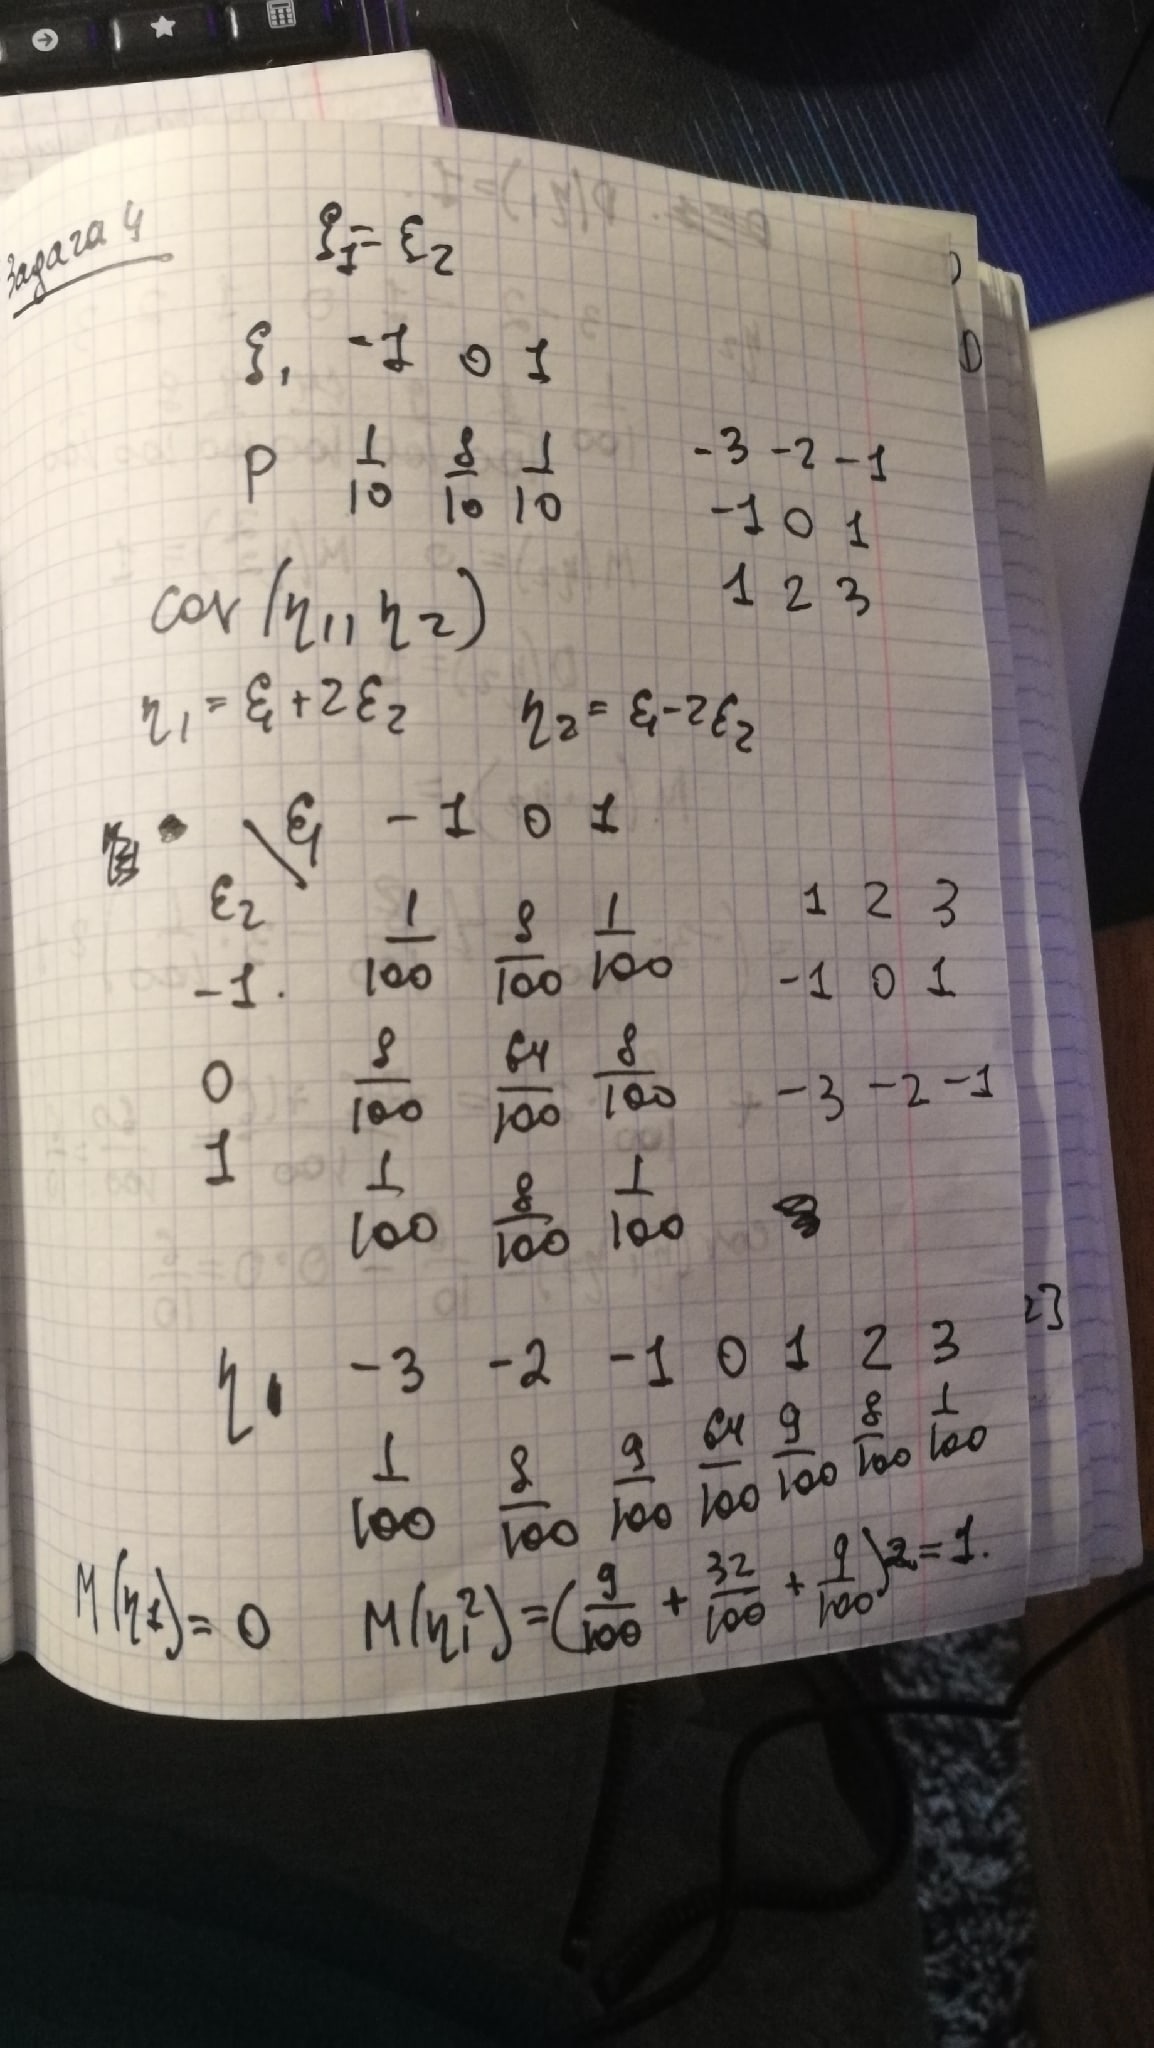 Задача 4
ξ₁ = ξ₂
ξ₁ -1 0 1
P 1/10 8/10 1/10
-3 -2 -1
-1 0 1
1 2 3
cov(η₁, η₂)
η₁ = ξ₁ + 2ξ₂ η₂ = ξ₁ - 2ξ₂
ξ₁ -1 0 1
ξ₂
-1. 1/100 8/100 1/100
0 8/100 64/100 8/100
1 1/100 8/100 1/100
1 2 3
-1 0 1
-3 -2 -1
η₁ -3 -2 -1 0 1 2 3
1/100 8/100 9/100 64/100 9/100 8/100 1/100
M(η₁) = 0 M(η₁²) = (9/100 + 32/100 + 9/100)2 = 1.